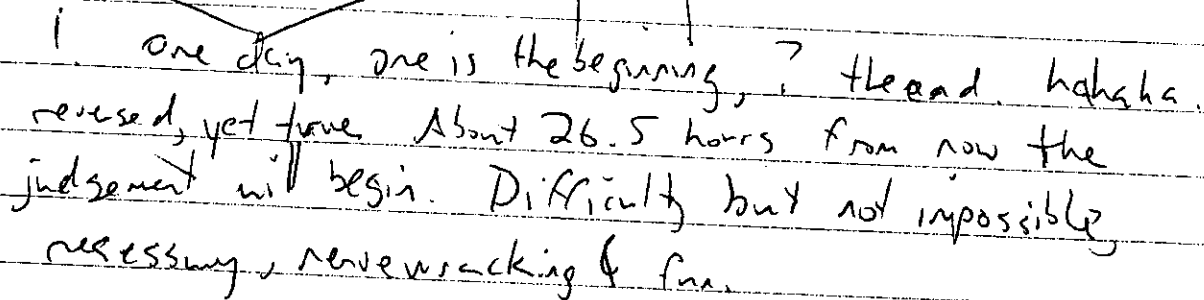 1. one day, one is the beginning, ? the end. hahaha.
reversed, yet true. About 26.5 hours from now the
judgement will begin. Difficulty but not impossible,
necessary, nervewracking & fun.